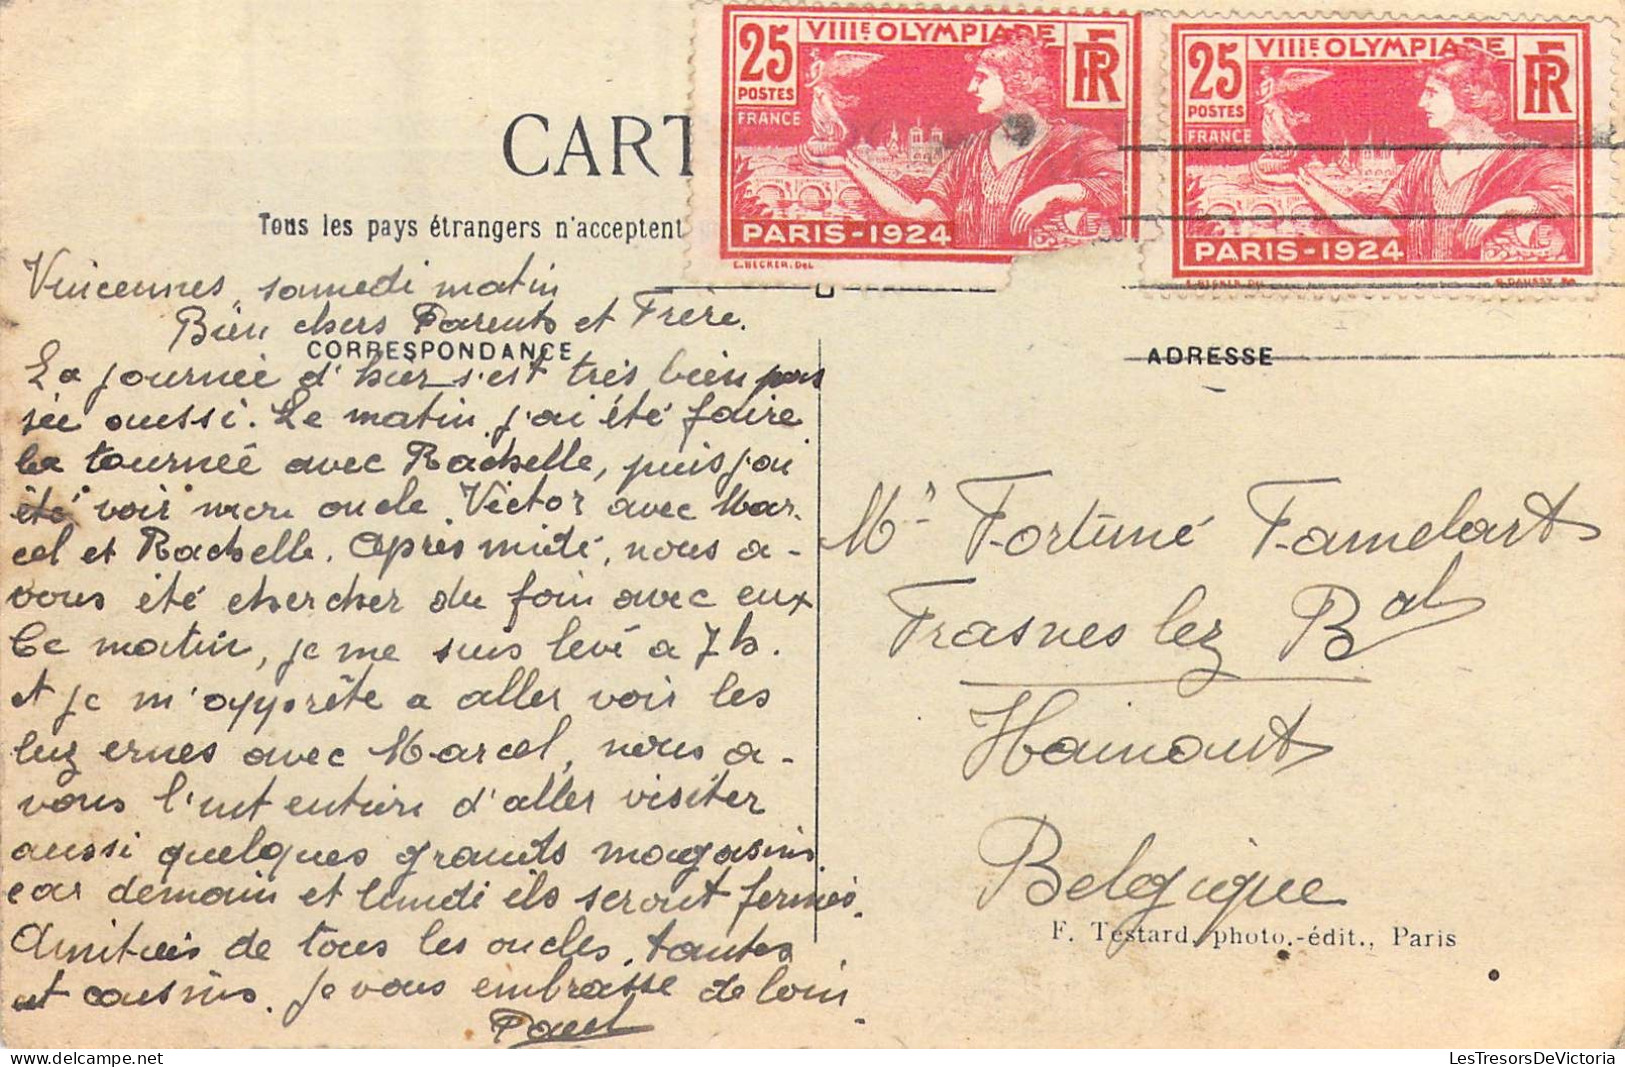 25 VIIIE OLYMPIADE RF
POSTES
FRANCE
PARIS-1924
E.BECKER.Del
25 VIIIE OLYMPIADE RF
POSTES
FRANCE
PARIS-1924
CART
Tous les pays étrangers n'acceptent
Vincennes, samedi matin
Bien chers Parents et Frère.
CORRESPONDANCE
La journée d'hier s'est très bien pas
sée aussi. Le matin j'ai été faire
la tournée avec Rachelle, puis j'ai
été voir mon oncle Victor avec Mar-
cel et Rachelle. Après midi, nous a-
vons été chercher du foin avec eux
Ce matin, je me suis levé à 7 h.
et je m'apprête a aller voir les
luzernes avec Marcel, nous a-
vons l'intention d'aller visiter
aussi quelques grands magasins
car demain et lundi ils seront fermés.
Amitiés de tous les oncles, tantes
et cousins. Je vous embrasse de loin
Paul
ADRESSE
Mr Fortuné Famelart
Frasnes lez Bal
Hainaut
Belgique
F. Testard, photo.-édit., Paris
LesTresorsDeVictoria